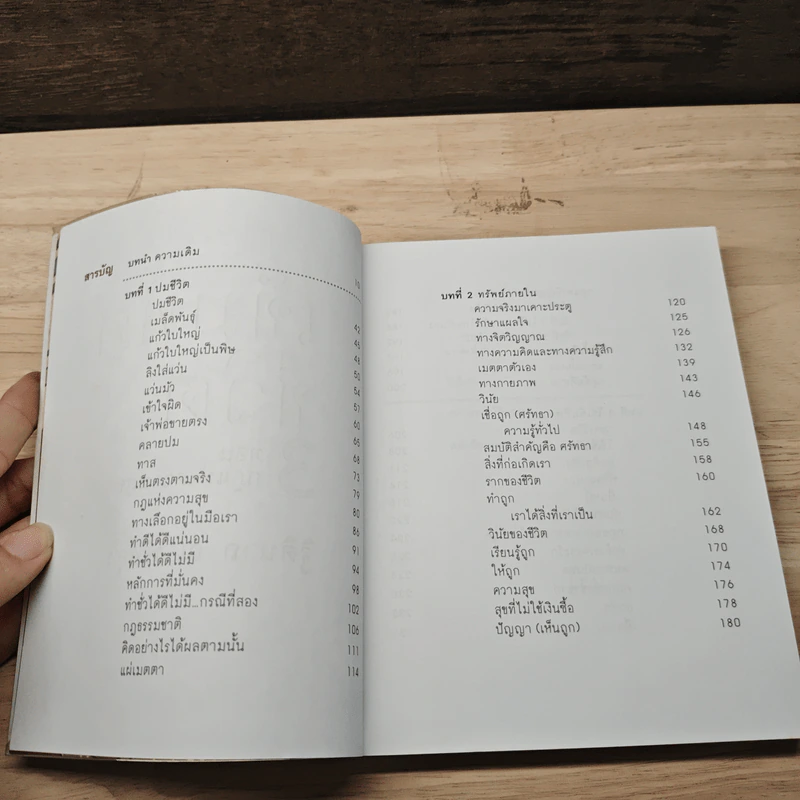 สารบัญ บทนำ ความเดิม 10
บทที่ 1 ปมชีวิต
ปมชีวิต 42
เมล็ดพันธุ์ 45
แก้วใบใหญ่ 48
แก้วใบใหญ่เป็นพิษ 50
ลิงใส่แว่น 54
แว่นมัว 57
เข้าใจผิด 60
เจ้าพ่อขายตรง 65
คลายปม 68
ทาส 73
เห็นตรงตามจริง 79
กฎแห่งความสุข 80
ทางเลือกอยู่ในมือเรา 86
ทำดีได้ดีแน่นอน 91
ทำชั่วได้ดีไม่มี 94
หลักการที่มั่นคง 98
ทำชั่วได้ดีไม่มี...กรณีที่สอง 102
กฎธรรมชาติ 106
คิดอย่างไรได้ผลตามนั้น 111
แผ่เมตตา 114
บทที่ 2 ทรัพย์ภายใน
ความจริงมาเคาะประตู 120
รักษาแผลใจ 125
ทางจิตวิญญาณ 126
ทางความคิดและทางความรู้สึก 132
เมตตาตัวเอง 139
ทางกายภาพ 143
วินัย 146
เชื่อถูก (ศรัทธา)
ความรู้ทั่วไป 148
สมบัติสำคัญคือ ศรัทธา 155
สิ่งที่ก่อเกิดเรา 158
รากของชีวิต 160
ทำถูก
เราได้สิ่งที่เราเป็น 162
วินัยของชีวิต 168
เรียนรู้ถูก 170
ให้ถูก 174
ความสุข 176
สุขที่ไม่ใช้เงินซื้อ 178
ปัญญา (เห็นถูก) 180